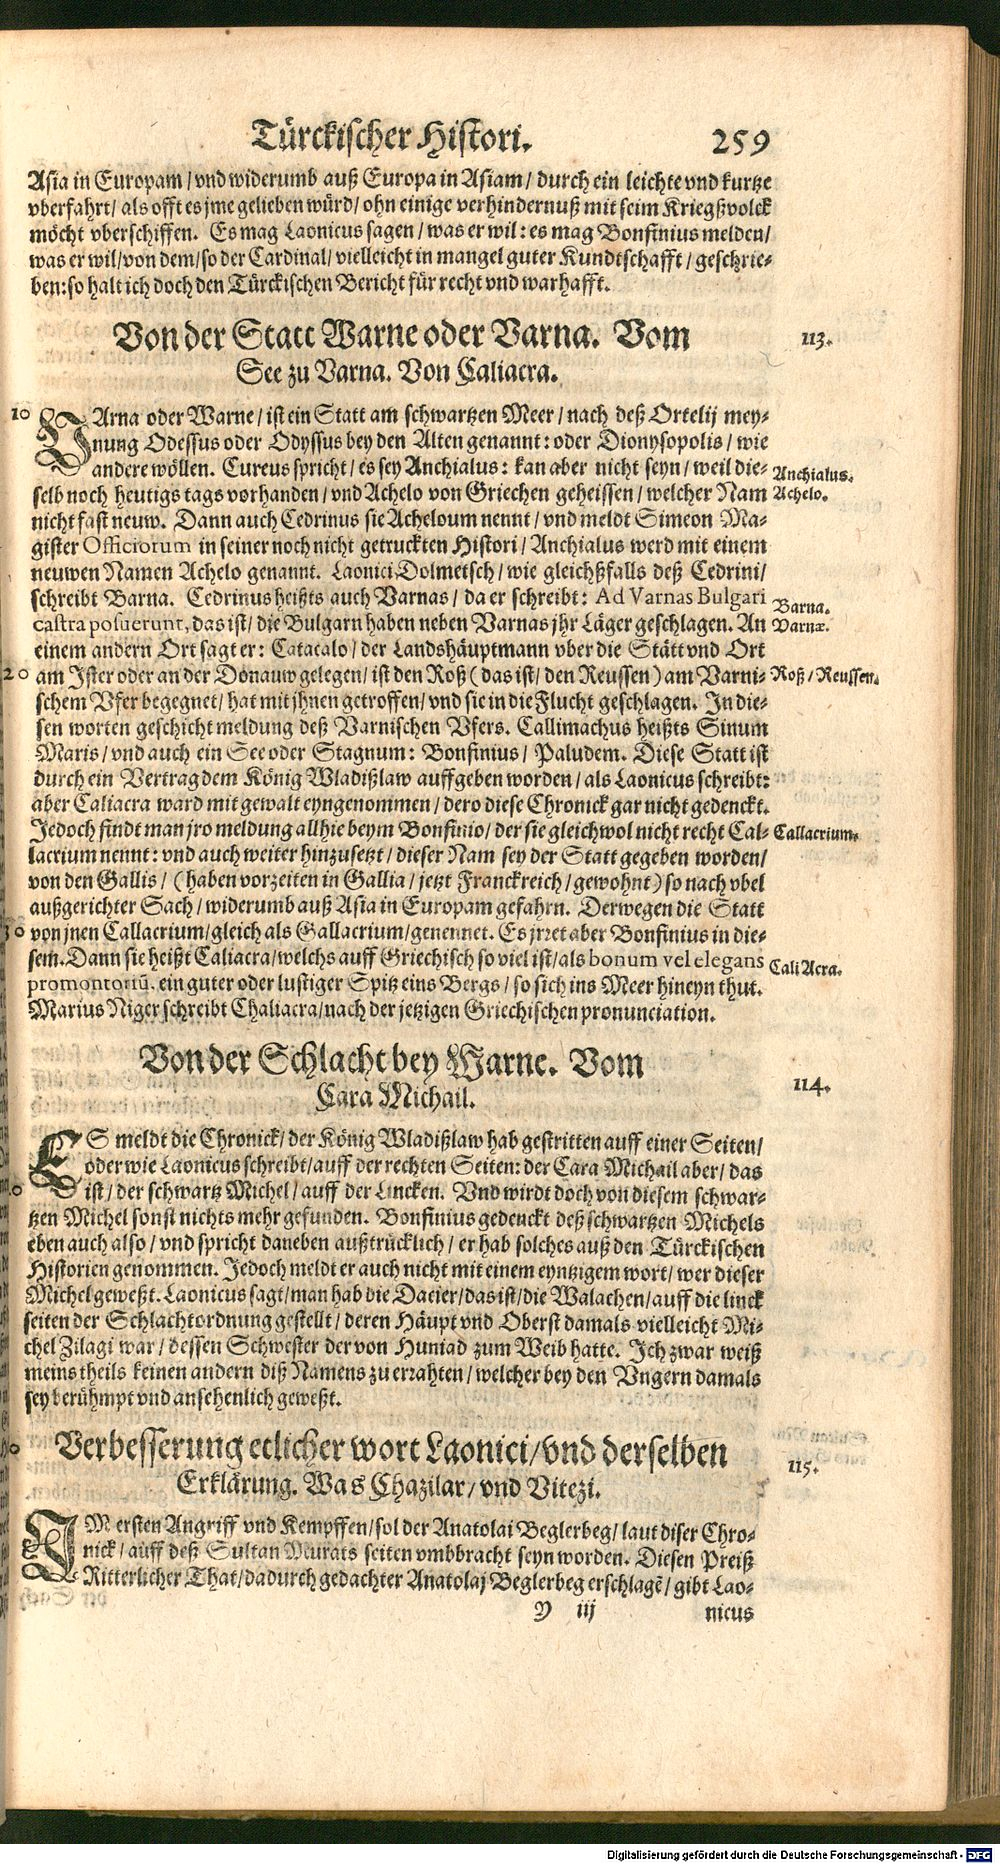 Türckischer Histori. 259
Asia in Europam / vnd widerumb auß Europa in Asiam / durch ein leichte vnd kurtze
vberfahrt / als offt es jme gelieben würd / ohn einige verhindernuß mit seim Kriegßvolck
möcht vberschiffen. Es mag Laonicus sagen / was er wil: es mag Bonfinius melden /
was er wil / von dem / so der Cardinal / vielleicht in mangel guter Kundtschafft / geschrie-
ben: so halt ich doch den Türckischen Bericht für recht vnd warhafft.
Von der Statt Warne oder Varna. Vom
113.
See zu Varna. Von Caliacra.
10
VArna oder Warne / ist ein Statt am schwartzen Meer / nach deß Ortelij mey-
nung Odessus oder Odyssus bey den Alten genannt: oder Dionysopolis / wie
andere wöllen. Cureus spricht / es sey Anchialus: kan aber nicht seyn / weil die-
Anchialus.
selb noch heutigs tags vorhanden / vnd Achelo von Griechen geheissen / welcher Nam
Achelo.
nicht fast neuw. Dann auch Cedrinus sie Acheloum nennt / vnd meldt Simeon Ma-
gister Officiorum in seiner noch nicht getruckten Histori / Anchialus werd mit einem
neuwen Namen Achelo genannt. Laonici Dolmetsch / wie gleichßfalls deß Cedrini /
schreibt Barna. Cedrinus heißts auch Varnas / da er schreibt: Ad Varnas Bulgari
Barna.
castra posuerunt, das ist / die Bulgarn haben neben Varnas jhr Läger geschlagen. An
Varnæ.
einem andern Ort sagt er: Catacalo / der Landshäuptmann vber die Stätt vnd Ort
20
am Ister oder an der Donauw gelegen / ist den Roß (das ist / den Reussen) am Varni-
Roß / Reussen.
schem Vfer begegnet / hat mit jhnen getroffen / vnd sie in die Flucht geschlagen. In die-
sen worten geschicht meldung deß Varnischen Vfers. Callimachus heißts Sinum
Maris / vnd auch ein See oder Stagnum: Bonfinius / Paludem. Diese Statt ist
durch ein Vertrag dem König Wladißlaw auffgeben worden / als Laonicus schreibt:
aber Caliacra ward mit gewalt eyngenommen / dero diese Chronick gar nicht gedenckt.
Jedoch findt man jro meldung allhie beym Bonfinio / der sie gleichwol nicht recht Cal-
Callacrium.
lacrium nennt: vnd auch weiter hinzusetzt / dieser Nam sey der Statt gegeben worden /
von den Gallis / (haben vorzeiten in Gallia / jetzt Franckreich / gewohnt) so nach vbel
außgerichter Sach / widerumb auß Asia in Europam gefahrn. Derwegen die Statt
30
von jnen Callacrium / gleich als Gallacrium / genennet. Es jrret aber Bonfinius in die-
sem. Dann sie heißt Caliacra / welchs auff Griechisch so viel ist / als bonum vel elegans
Cali Acra.
promontoriũ. ein guter oder lustiger Spitz eins Bergs / so sich ins Meer hineyn thut.
Marius Niger schreibt Chaliacra / nach der jetzigen Griechischen pronunciation.
Von der Schlacht bey Warne. Vom
114.
Cara Michail.
ES meldt die Chronick / der König Wladißlaw hab gestritten auff einer Seiten /
oder wie Laonicus schreibt / auff der rechten Seiten: der Cara Michail aber / das
ist / der schwartz Michel / auff der Lincken. Vnd wirdt doch von diesem schwar-
tzen Michel sonst nichts mehr gefunden. Bonfinius gedenckt deß schwartzen Michels
eben auch also / vnd spricht daneben außtrücklich / er hab solches auß den Türckischen
Historien genommen. Jedoch meldt er auch nicht mit einem eyntzigem wort / wer dieser
Michel geweßt. Laonicus sagt / man hab die Dacier / das ist / die Walachen / auff die linck
seiten der Schlachtordnung gestellt / deren Häupt vnd Oberst damals vielleicht Mi-
chel Zilagi war / dessen Schwester der von Huniad zum Weib hatte. Ich zwar weiß
meins theils keinen andern diß Namens zu errahten / welcher bey den Vngern damals
sey berühmpt vnd ansehenlich geweßt.
Verbesserung etlicher wort Laonici / vnd derselben
115.
Erklärung. Was Chazilar / vnd Vitezi.
IM ersten Angriff vnd Kempffen / sol der Anatolai Beglerbeg / laut diser Chro-
nick / auff deß Sultan Murats seiten vmbbracht seyn worden. Diesen Preiß
Ritterlicher That / dadurch gedachter Anatolaj Beglerbeg erschlagẽ / gibt Lao-
Y iij nicus
Digitalisierung gefördert durch die Deutsche Forschungsgemeinschaft - DFG